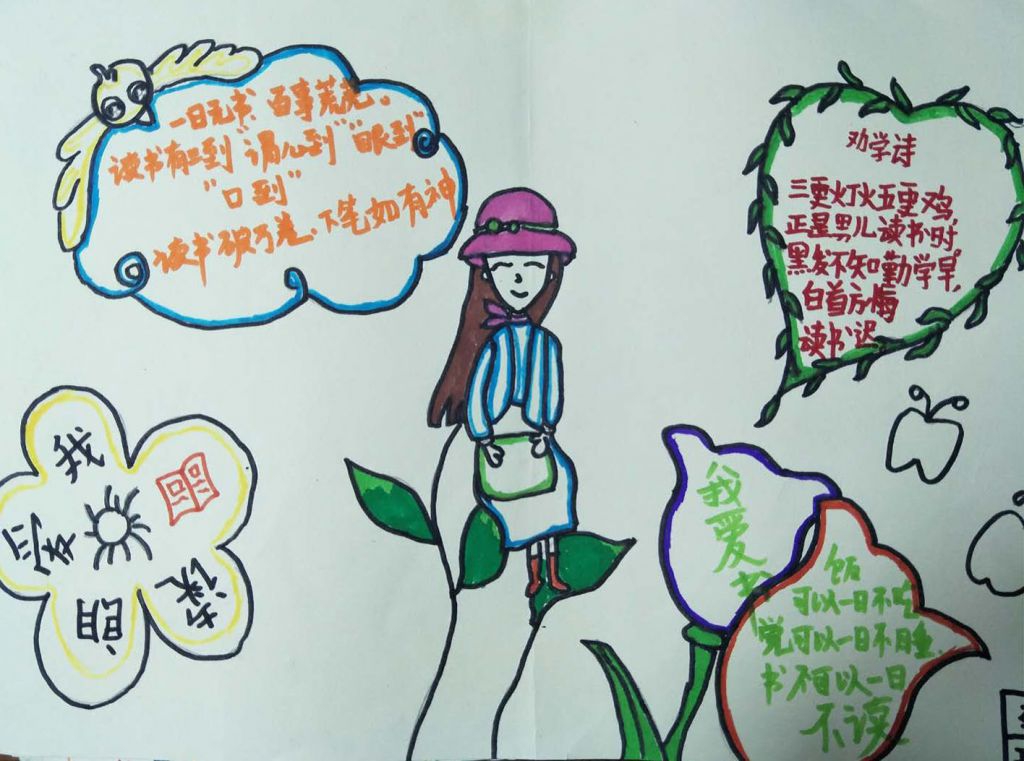 一日无书、百事荒芜。
读书有三到"谓心到""眼到"
"口到"
读书破万卷、下笔如有神
劝学诗
三更灯火五更鸡,
正是男儿读书时,
黑发不知勤学早,
白首方悔
读书迟
我
爱
读
我
爱
书
饭
可以一日不吃
觉可以一日不睡
书不可以一日
不读